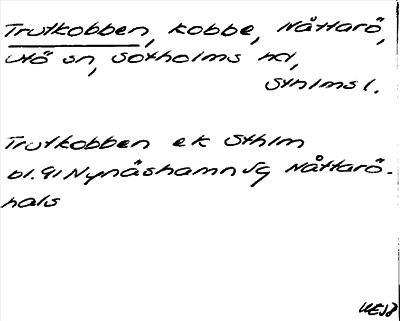 Trutkobben, kobbe, Nåttarö,
Utö sn, Sotholms hd,
Sthlms l.
Trutkobben ek Sthlm
bl. 91 Nynäshamn SQ Nåttarö-
hals